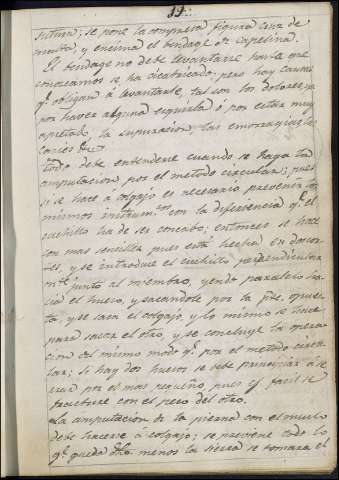 11.
sutura; se pone la compresa figura cruz de
malta, y encima el bendage ó capelina.
El bendage no debe levantarse hasta que
conozcamos se ha cicatrizado; pero hay causas
q.e obligan á levantarle, tal son los dolores,
por haver alguna esquirla ó por estar muy
apretado, la supuracion, las emorragias, la
caries &.
todo debe entenderse cuando se haga la
amputacion por el metodo circular; pues
si se hace á colgajo es necesario prevenir los
mismos instrum.tos con la diferiencia q.e el
cuchillo ha de ser concabo; entonces se hace
con mas sencillez pues está hecha en dos cor-
tes, y se introduce el cuchillo perpendicular
m.te junto al miembro, yendo paralelo ha-
cia el hueso, y sacandole por la p.te opues-
ta, y se saca el colgajo, y lo mismo se hace
para sacar el otro, y se concluye la opera-
cion del mismo modo q.e por el metodo circu-
lar; si hay dos huesos se debe principiar á se-
rrar por el mas pequeño pues es facil se
fracture con el peso del otro.
La amputacion de la pierna con el muslo
debe hacerse á colgajo; se previene todo lo
q.e queda dho. menos la sierra se tomara el